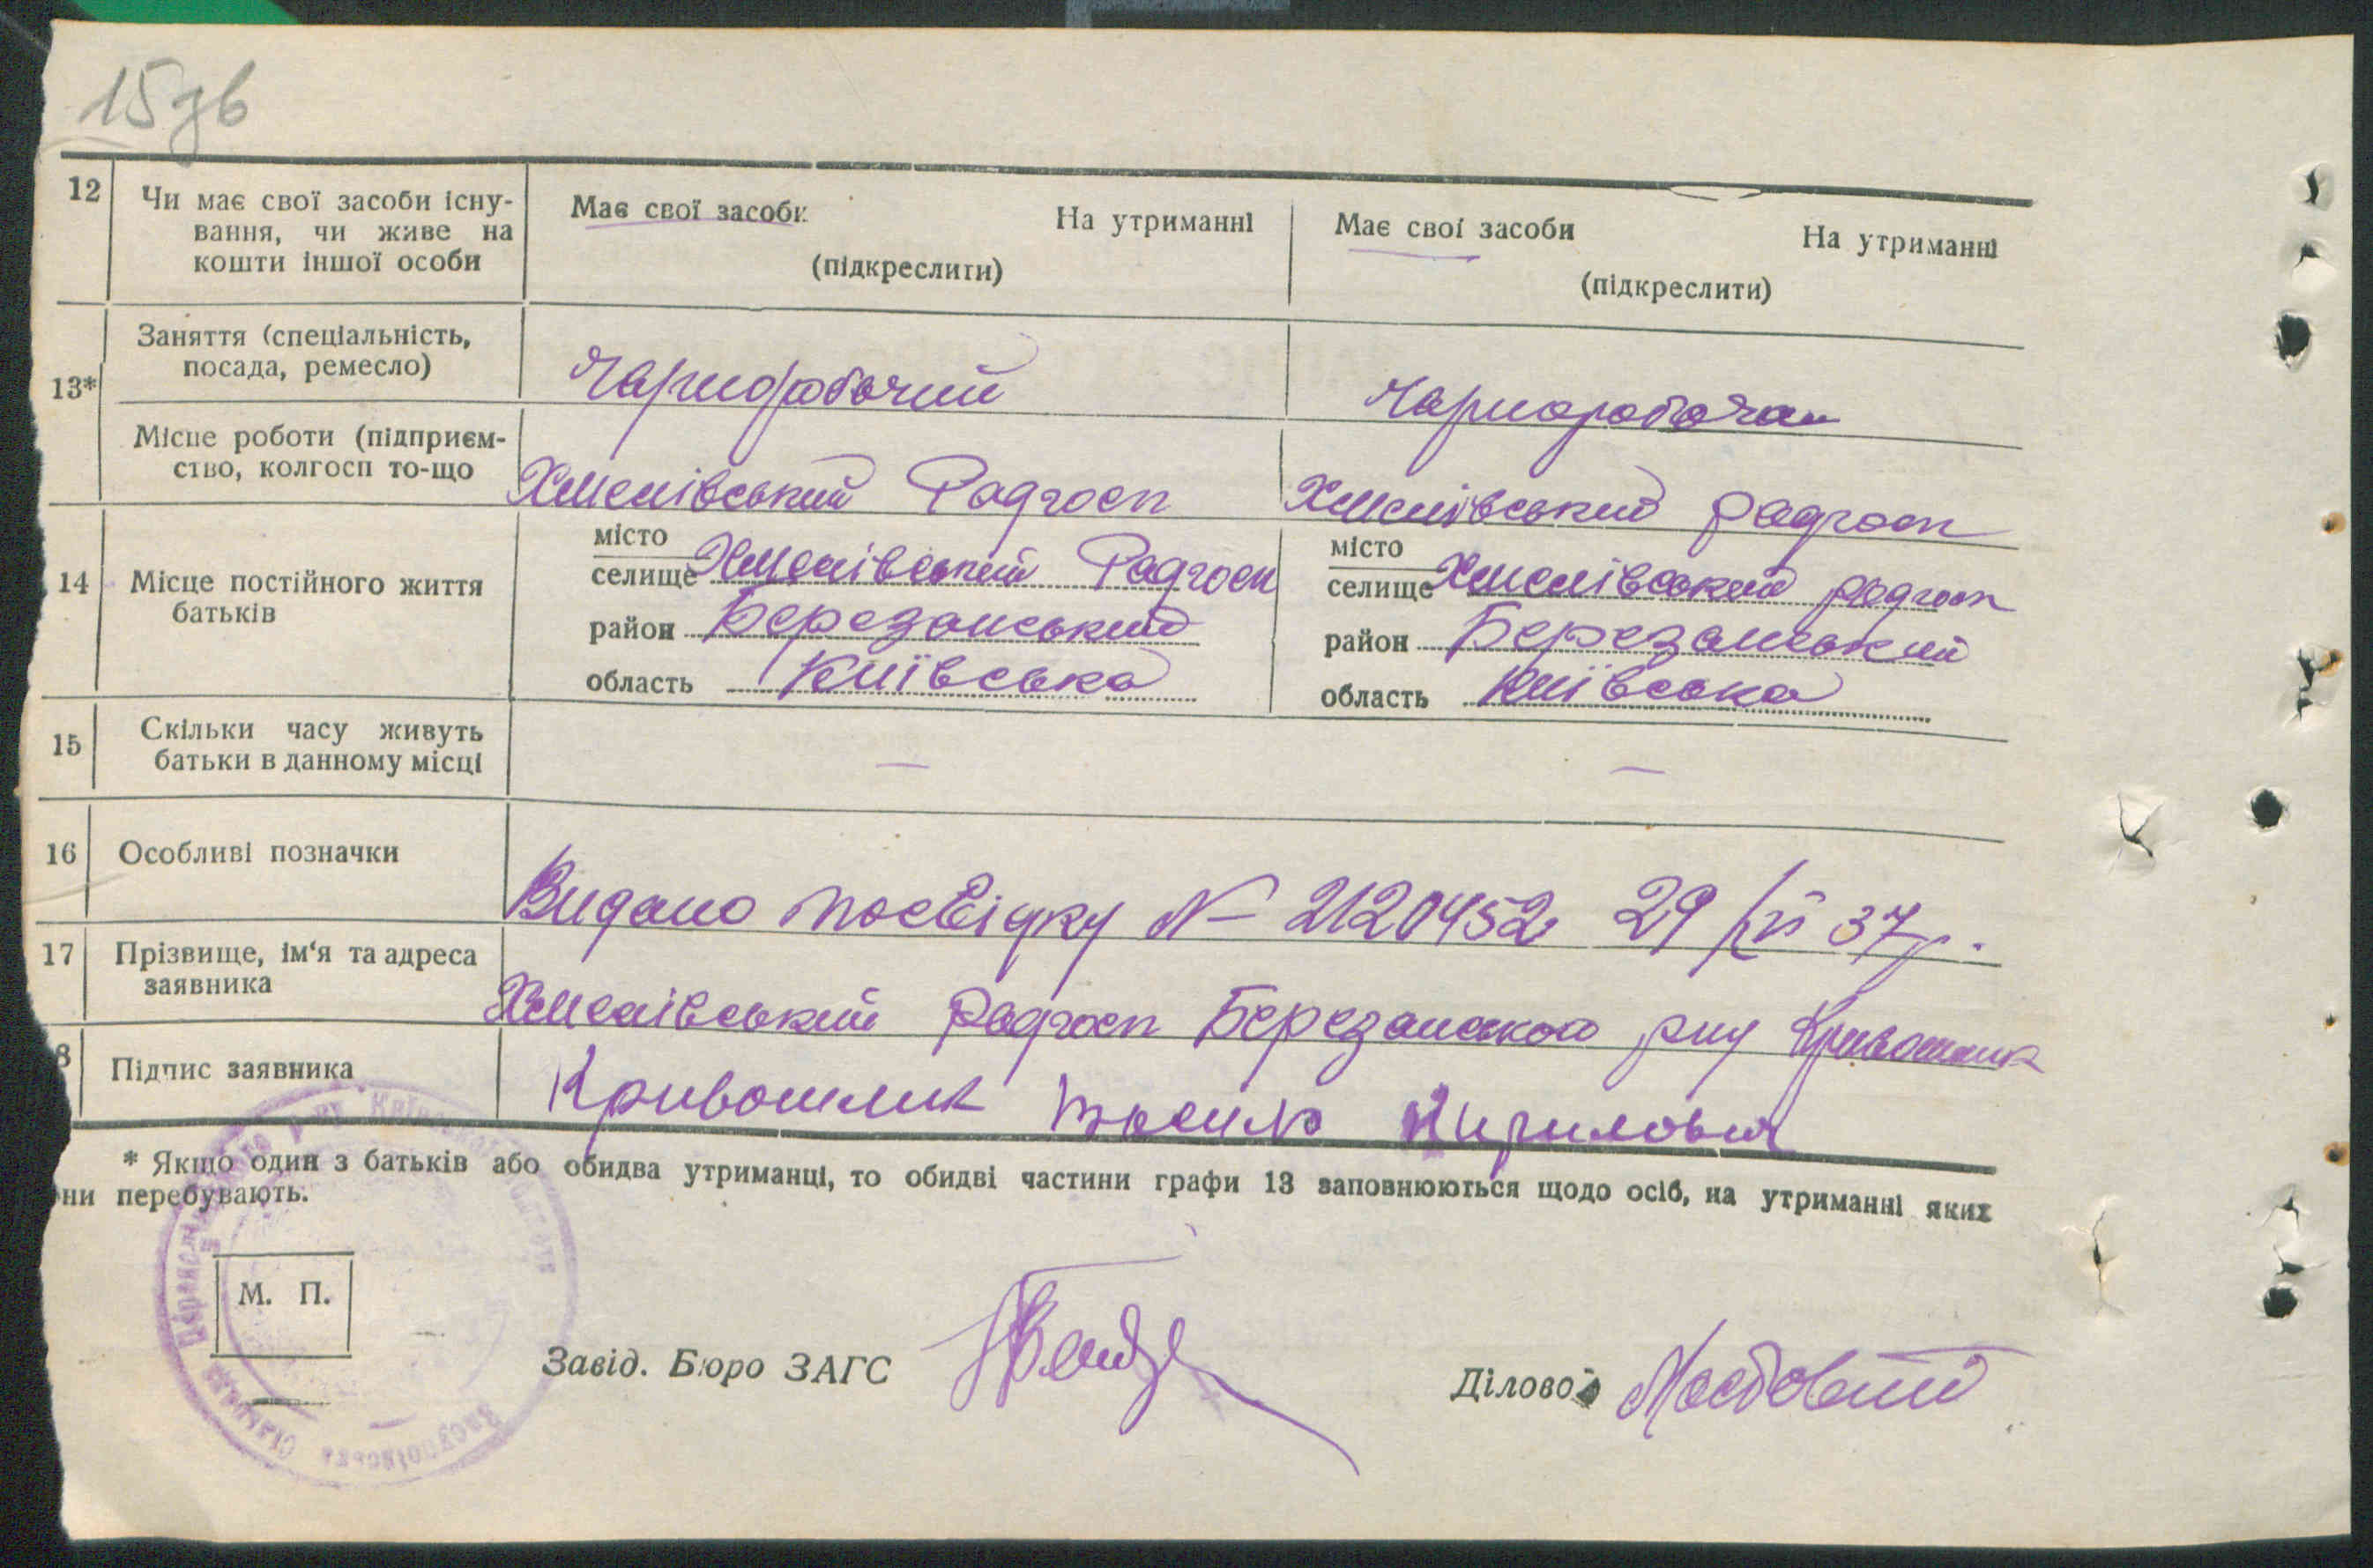 15 зв
12 Чи має свої засоби існу-
вання, чи живе на
кошти іншої особи
Має свої засоби На утриманні
(підкреслити)
Має свої засоби На утриманні
(підкреслити)
13*
Заняття (спеціальність,
посада, ремесло)
Чарнорабочий
Чарнорабочая
Місце роботи (підприєм-
ство, колгосп то-що
Хмелівський Радгосп
Хмелівський радгосп
14 Місце постійного життя
батьків
місто
селище Хмелівський Радгосп
район Березанський
область Київська
місто
селище Хмелівський радгосп
район Березанський
область Київська
15 Скільки часу живуть
батьки в данному місці
— —
16 Особливі позначки
Видано посвідку № 2120452 29/VI 37р.
17 Прізвище, ім‘я та адреса
заявника
Хмелівський Радгосп Березанского рну Кривошлик
8 Підпис заявника
Кривошлик Кирилович
* Якщо один з батьків або обидва утриманці, то обидві частини графи 13 заповнюються щодо осіб, на утриманні яких
ни перебувають.
М. П.
Завід. Бюро ЗАГС
Діловод Мостовий